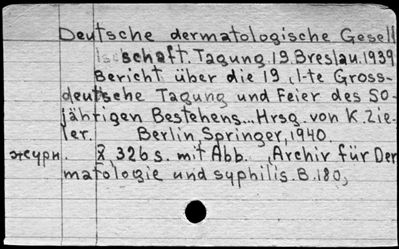 Deutsche dermatologische Gesell
schaft. Tagung 19. Breslau. 1939
Bericht über die 19 -te Gross-
deutsche Tagung und Feier des 50-
jährigen Bestehens... Hrsg. von K. Zie-
ler. Berlin Springer, 1940.
журн. X 326 s. mit Abb. Archiv für Der
matologie und syphilis. B. 180,